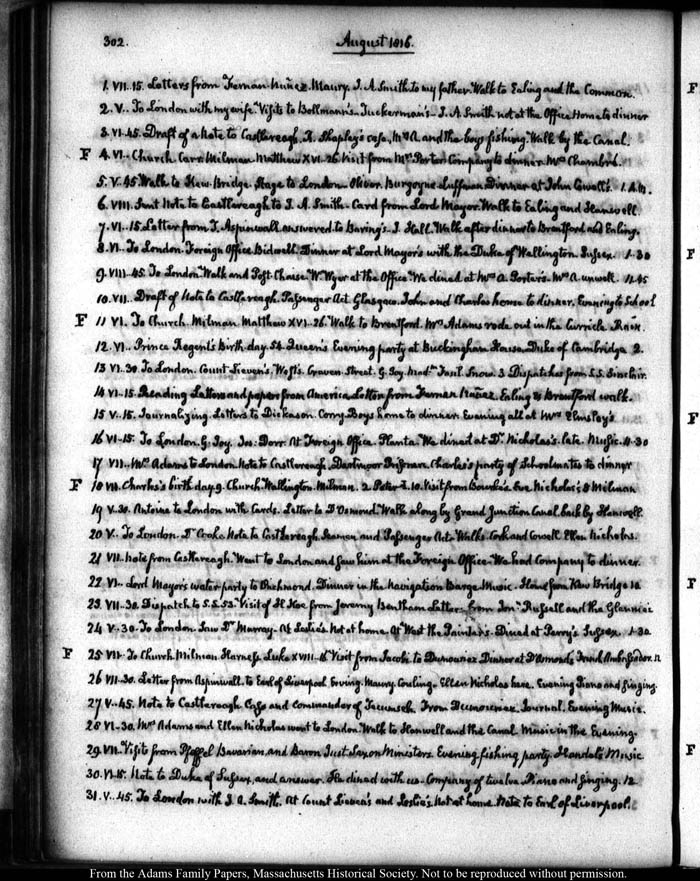 302. August 1816.
1. VII. 15. Letters from Fernan Nuñez. Maury. J. A. Smith to my father. Walk to Ealing and the Common.
2. V.. To London with my wife. Visits to Bollmann's. Tuckerman's. J. A. Smith not at the Office. Home to dinner
3. VI. 45. Draft of a Note to Castlereagh. R. Shapley's case. Mrs A. and the boys fishing. Walk by the Canal.
F 4. VI.. Church. Carr. Milman. Matthew XVI. 26. Visit from Mrs Porter. Company to dinner. Mrs
5. V. 45. Walk to Kew Bridge. Stage to London. Oliver. Burgoyne. Luffman. Dinner at John Cowell's. 1. A.M.
6. VIII. Sent Note to Castlereagh to J. A. Smith. Card from Lord Mayor. Walk to Ealing and Hanwell.
7. VI.. 15. Letter from T. Aspinwall answered to Baring's. J. Hall. Walk after dinner to Brentford and Ealing.
8. VI.. To London. Foreign Office. Bidwell. Dinner at Lord Mayor's with the Duke of Wellington. Sussex. 1. 30
9. VIII. 45. To London. Walk and Post-Chaise. W. Wyer at the Office. We dined at Mrs A. Porter's. Mrs A. unwell. 11. 45
10. VII.. Draft of Note to Castlereagh. Passenger Act. Glasgow. John and Charles home to dinner. Evening to School
F 11 VI. To Church. Milman. Matthew XVI. 26. Walk to Brentford. Mrs Adams rode out in the Curricle. Rain.
12. VI.. Prince Regent's Birth-day. 54. Queen's Evening party at Buckingham House. Duke of Cambridge 2.
13 VI. 30. To London. Count Lieven's. West's. Craven Street. G. Joy. Snow. 3 Dispatches from S.S. Sinclair.
14 VI. 15. Reading Letters and papers from America. Letter from Fernan Nuñez. Ealing & Brentford walk.
15 V. 15. Journalizing. Letters to Dickason. Corry. Boys home to dinner. Evening all at Mrs Elmsley's
16 VI. 15. To London. G. Joy. Jos. Dorr. At Foreign Office. Planta. We dined at Dr Nicholas's. late. Music. 11. 30
17 VII.. Mrs Adams to London. Note to Castlereagh. Dartmoor Prisoner. Charles's party of Schoolmates to dinner
F 18 VII. Charles's birth day 9. Church. Wallington. Milman. 2 Peter I. 10. Visit from Bourke's. Eve Nicholas's & Milman
19 V. 30. Antoine to London with Cards. Letter to D'Osmond. Walk along by Grand Junction Canal back by Hanwell.
20 V.. To London. Dr Cooke. Note to Castlereagh. Seamen and Passenger Act. Walks. Cork and Cowell. Ellen Nicholas.
21 VII. Note from Castlereagh. Went to London and saw him at the Foreign Office. We had Company to dinner.
22 VI.. Lord Mayor's water party to Richmond. Dinner in the Navigation Barge. Music. Home from Kew Bridge 10
23. VII. 30. Dispatch to S.S. 53. Visit of H. Koe from Jeremy Bentham. Letters from Jona Russell and the
24 V. 30. To London. Saw Dr Murray. At Leslie's. Not at home. At West the Painter's. Dined at Perry's. Sussex. 1. 30
F 25 VII. To Church. Milman. Harness. Luke XVIII. Visit from Jacobi to Dinner at D'Osmond's French Ambassador. 12
26 VII. 30. Letter from Aspinwall. to Earl of Liverpool. Erving. Maury. Ellen Nicholas here. Evening Piano and Singing.
27 V.. 45. Note to Castlereagh. Case and Commander of Tecumseh. From Journal. Evening Music.
28 VI. 30. Mrs Adams and Ellen Nicholas went to London. Walk to Hanwell and the Canal. Music in the Evening.
29 VII. Visits from Pfeffel Bavarian, and Baron Just Saxon Ministers. Evening fishing party. Handel's Music
30. VI. 15. Note to Duke of Sussex, and answer. He dined with us. Company of twelve. Piano and Singing. 12
31. V.. 45. To London with J. A. Smith. At Count Lieven's and Leslie's. Not at home. Note to Earl of Liverpool.
F
F
F
F
From the Adams Family Papers, Massachusetts Historical Society. Not to be reproduced without permission.